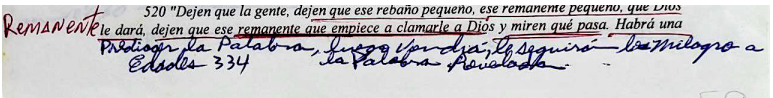 520 "Dejen que la gente, dejen que ese rebaño pequeño, ese remanente pequeño, que Dios
REMANENTE le dará, dejen que ese remanente que empiece a clamarle a Dios y miren qué pasa. Habrá una
Predicar la Palabra, luego vendrá, le seguirán los milagro a
Edades 334 la Palabra Revelada.